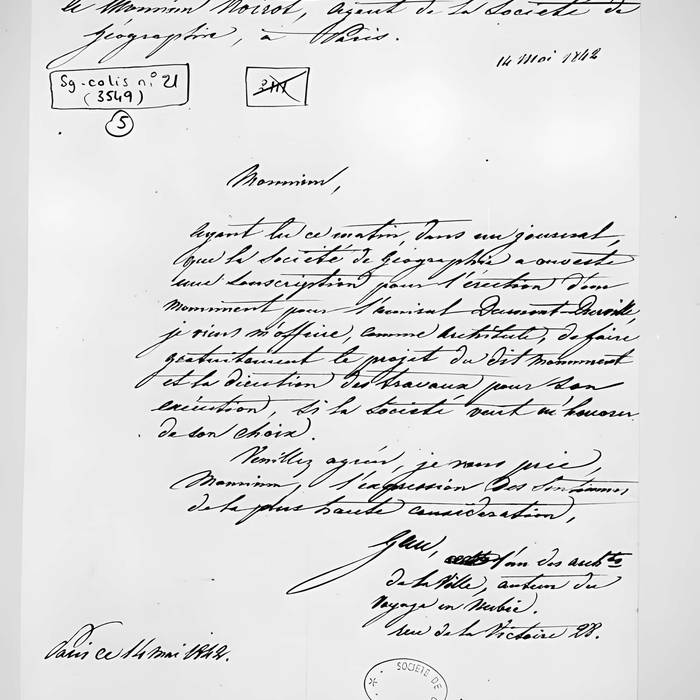 le Monsieur Noirot, agent de la Société de
Géographie, à Paris.
14 Mai 1842
Sg-colis n° 21
(3549)
5
Monsieur,
ayant lu ce matin, dans un journal,
que la Société de Géographie a ouverte
une souscription pour l'érection d'un
monument pour l'amiral Dumont-Durville,
je viens m'offrire, comme architecte, de faire
gratuitement le projet du dit monument
et la direction des travaux pour son
exécution, si la Société veut m'honorer
de son choix.
Veuillez agréer, je vous prie,
Monsieur, l'expression des sentimens
de la plus haute considération,
Gau,
l'un des archtes
de la Ville, auteur du
Voyage en Nubie.
rue de la Victoire 28.
Paris ce 14 mai 1842.
SOCIETE DE